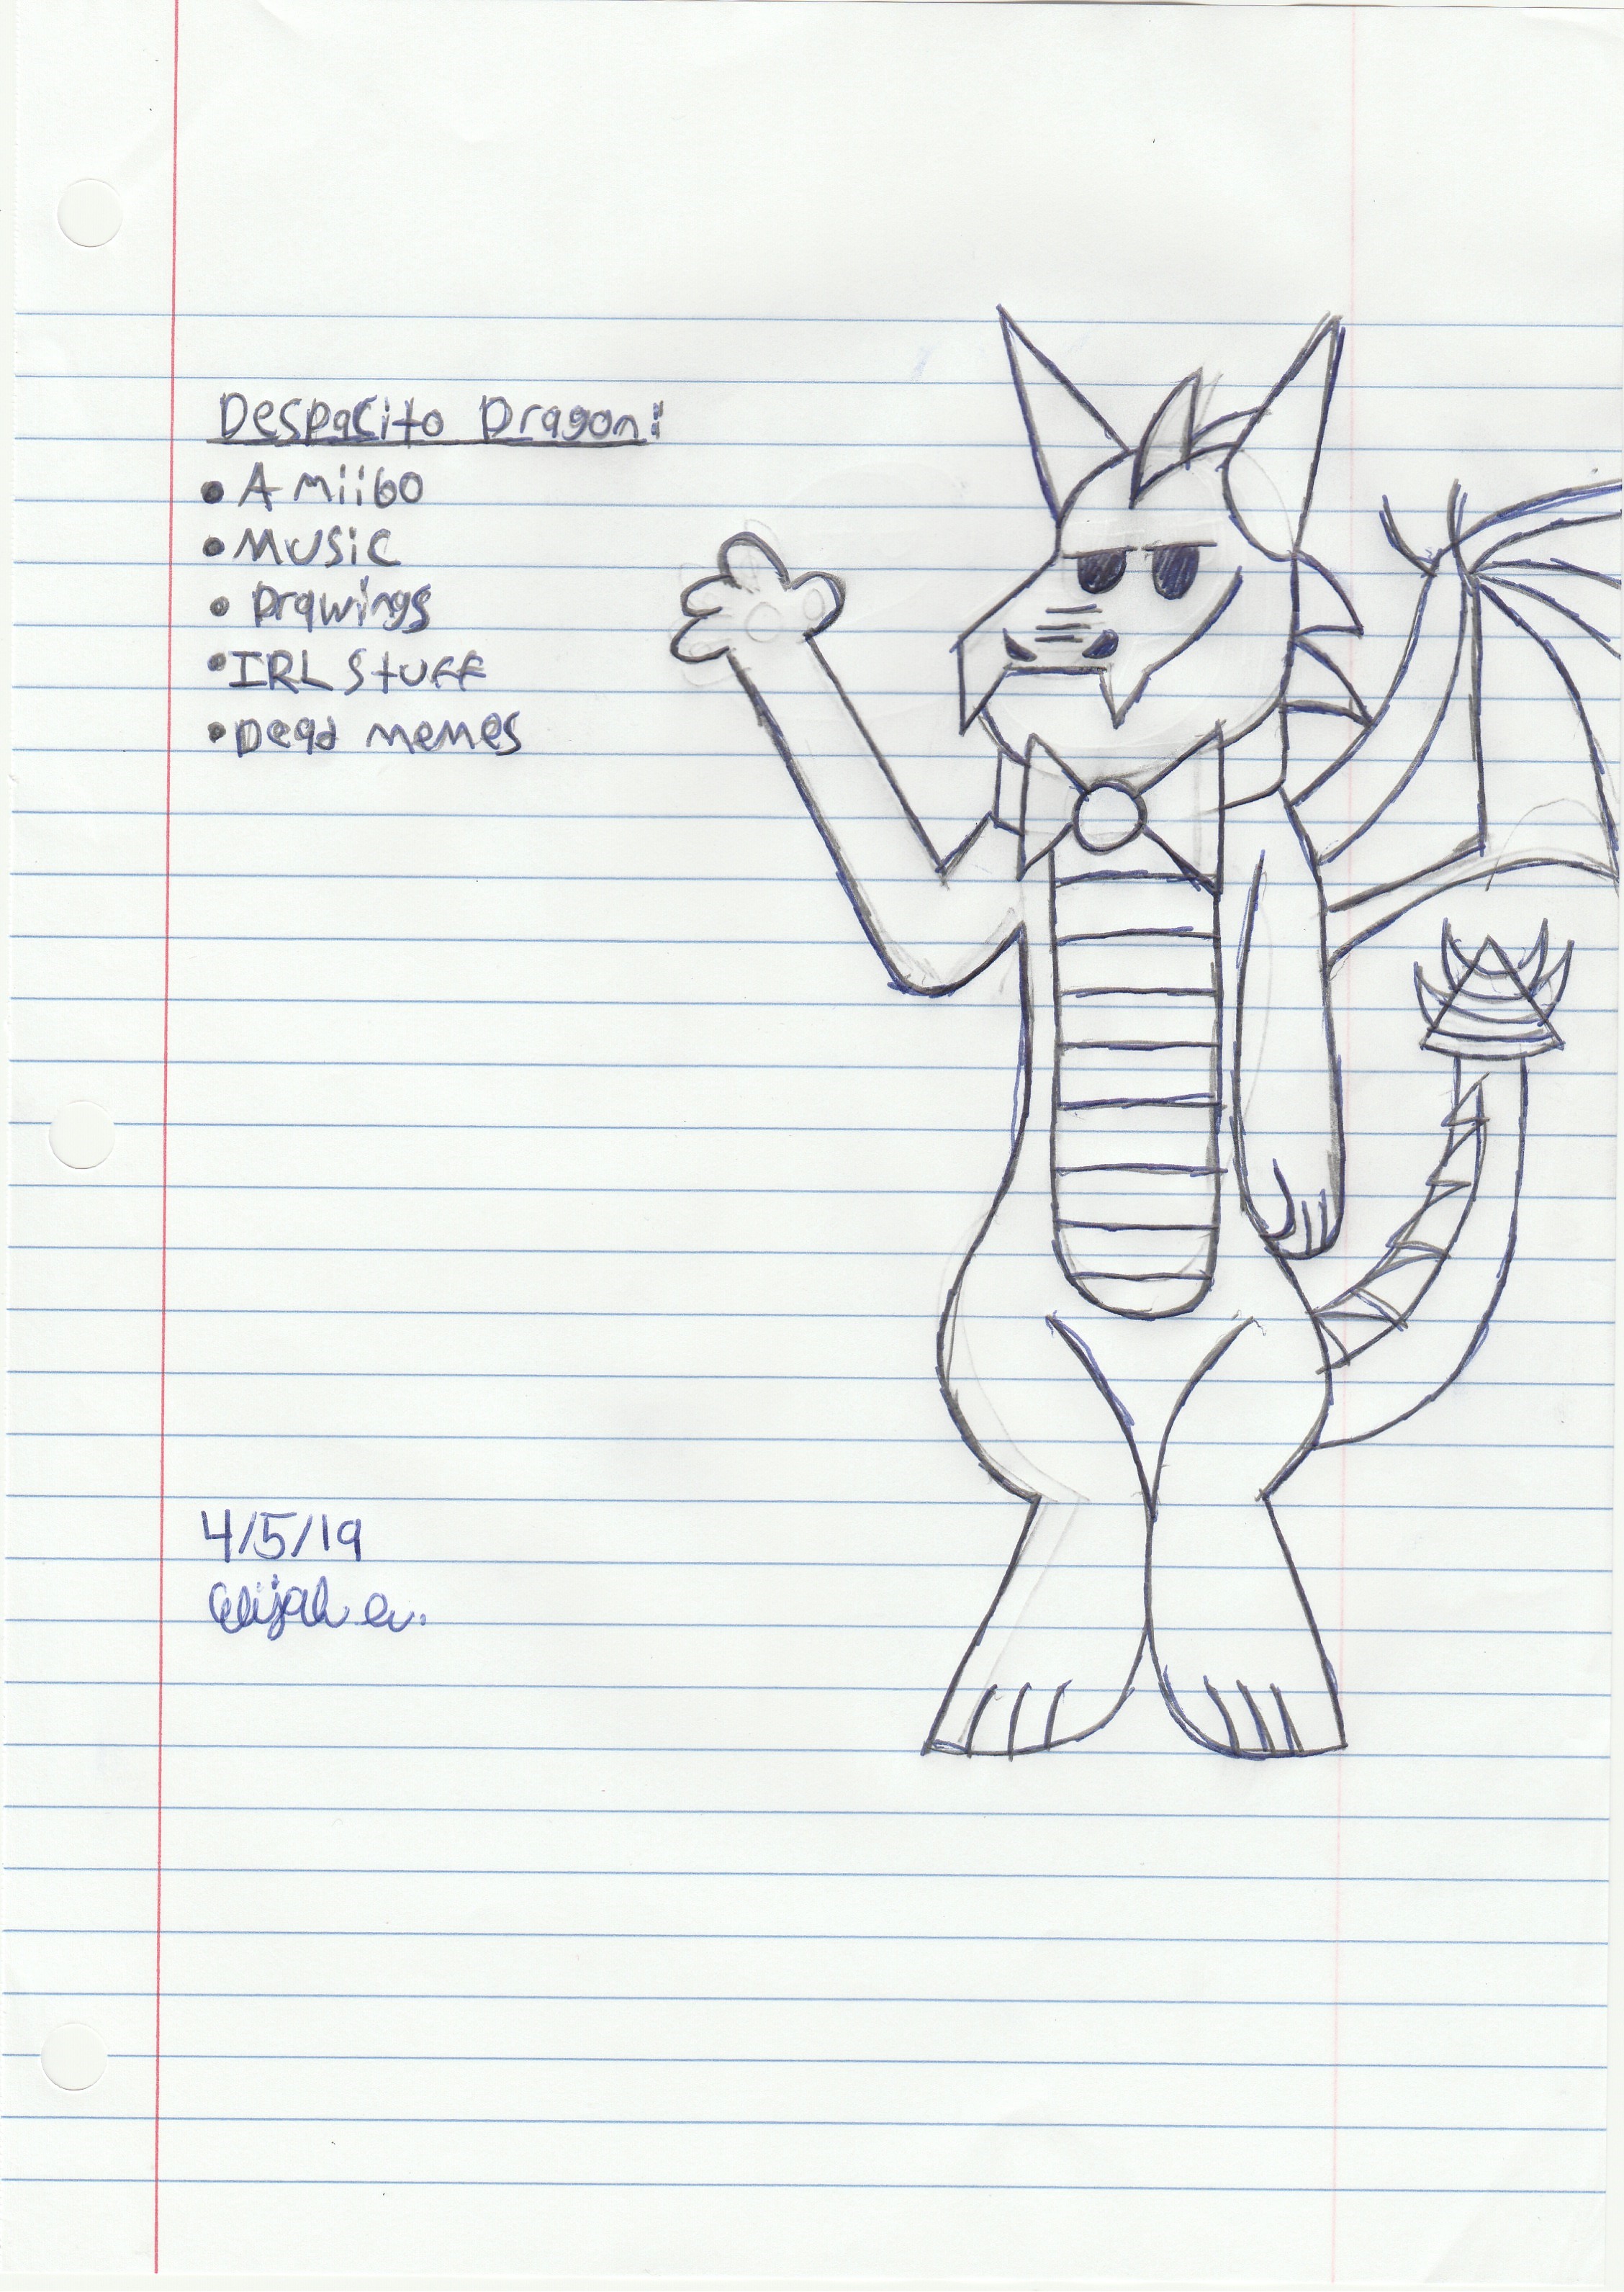 Despacito Dragon:
• Amiibo
• Music
• Drawings
• IRL Stuff
• Dead memes
4/5/19
Elijah a.